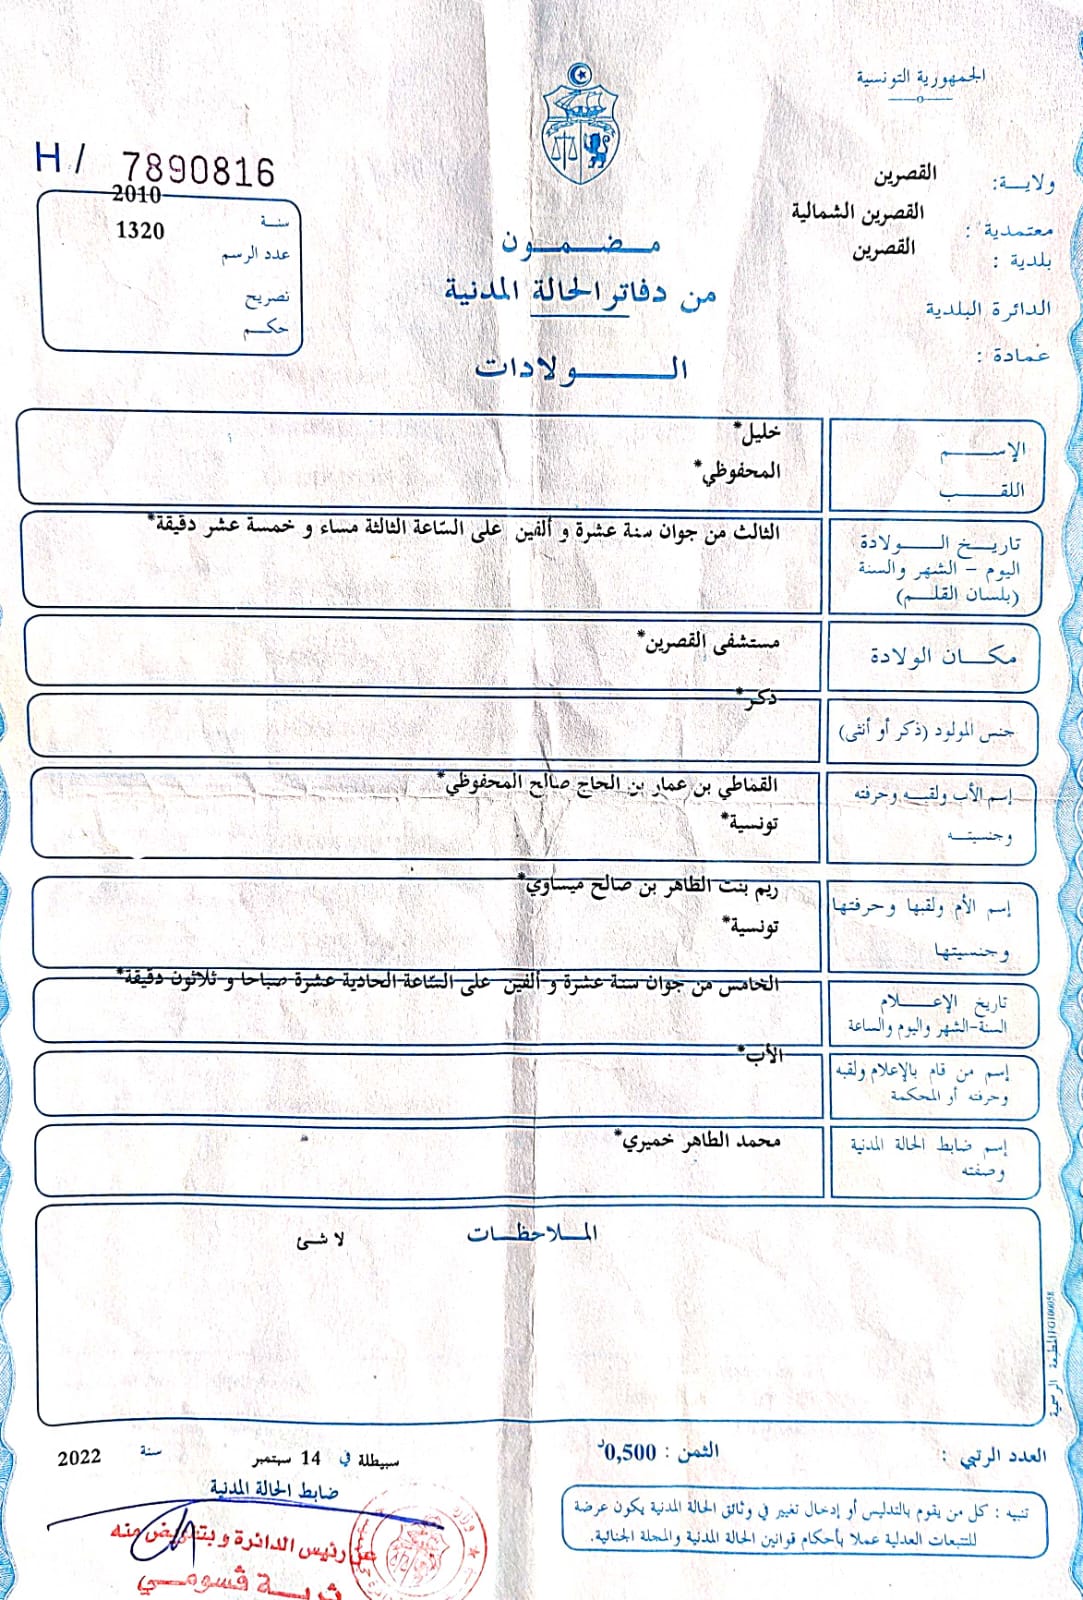 الجمهورية التونسية
H/ 7890816
ولاية: القصرين
معتمدية: القصرين الشمالية
بلدية: القصرين
الدائرة البلدية
عمادة:
سنة 2010
عدد الرسم 1320
تصريح
حكم
مضمون
من دفاتر الحالة المدنية
الولادات
الإسم خليل*
اللقب المحفوظي*
تاريخ الولادة
اليوم - الشهر والسنة
(بلسان القلم)
الثالث من جوان سنة عشرة و ألفين على السّاعة الثالثة مساء و خمسة عشر دقيقة*
مكان الولادة مستشفى القصرين*
جنس المولود (ذكر أو أنثى) ذكر*
إسم الأب ولقبه وحرفته القماطي بن عمار بن الحاج صالح المحفوظي*
وجنسيته تونسية*
إسم الأم ولقبها وحرفتها ريم بنت الطاهر بن صالح ميساوي*
وجنسيتها تونسية*
تاريخ الإعلام
السنة-الشهر واليوم والساعة
الخامس من جوان سنة عشرة و ألفين على السّاعة الحادية عشرة صباحا و ثلاثون دقيقة*
إسم من قام بالإعلام ولقبه
وحرفته أو المحكمة
الأب*
إسم ضابط الحالة المدنية
وصفته
محمد الطاهر خميري*
الملاحظات
لا شئ
المطبعة الرسمية
العدد الرتبي :
الثمن : 0,500د
سبيطلة في 14 سبتمبر سنة 2022
ضابط الحالة المدنية
تنبيه : كل من يقوم بالتدليس أو إدخال تغيير في وثائق الحالة المدنية يكون عرضة
للتتبعات العدلية عملا بأحكام قوانين الحالة المدنية والمجلة الجنائية.
عن رئيس الدائرة و بتفويض منه
ثرية قسومي